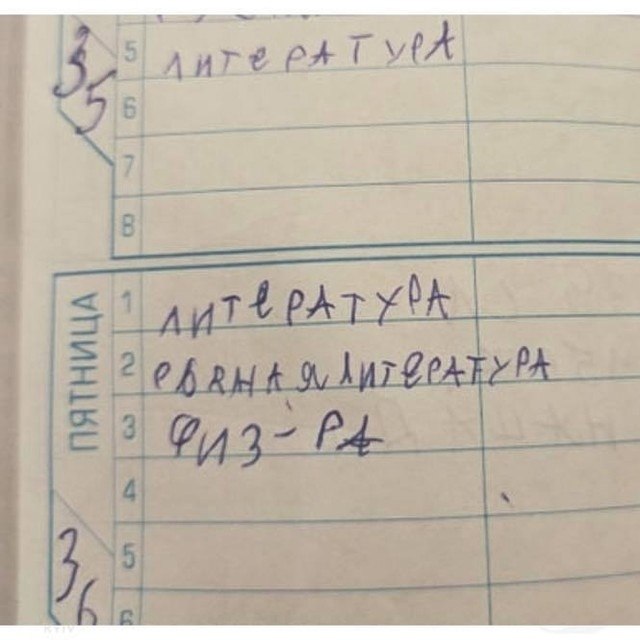 5 ЛИТЕРАТУРА
35
6
7
8
ПЯТНИЦА
1 ЛИТЕРАТУРА
2 РВАНАЯ ЛИТЕРАТУРА
3 ФИЗ-РА
4
5
36
6